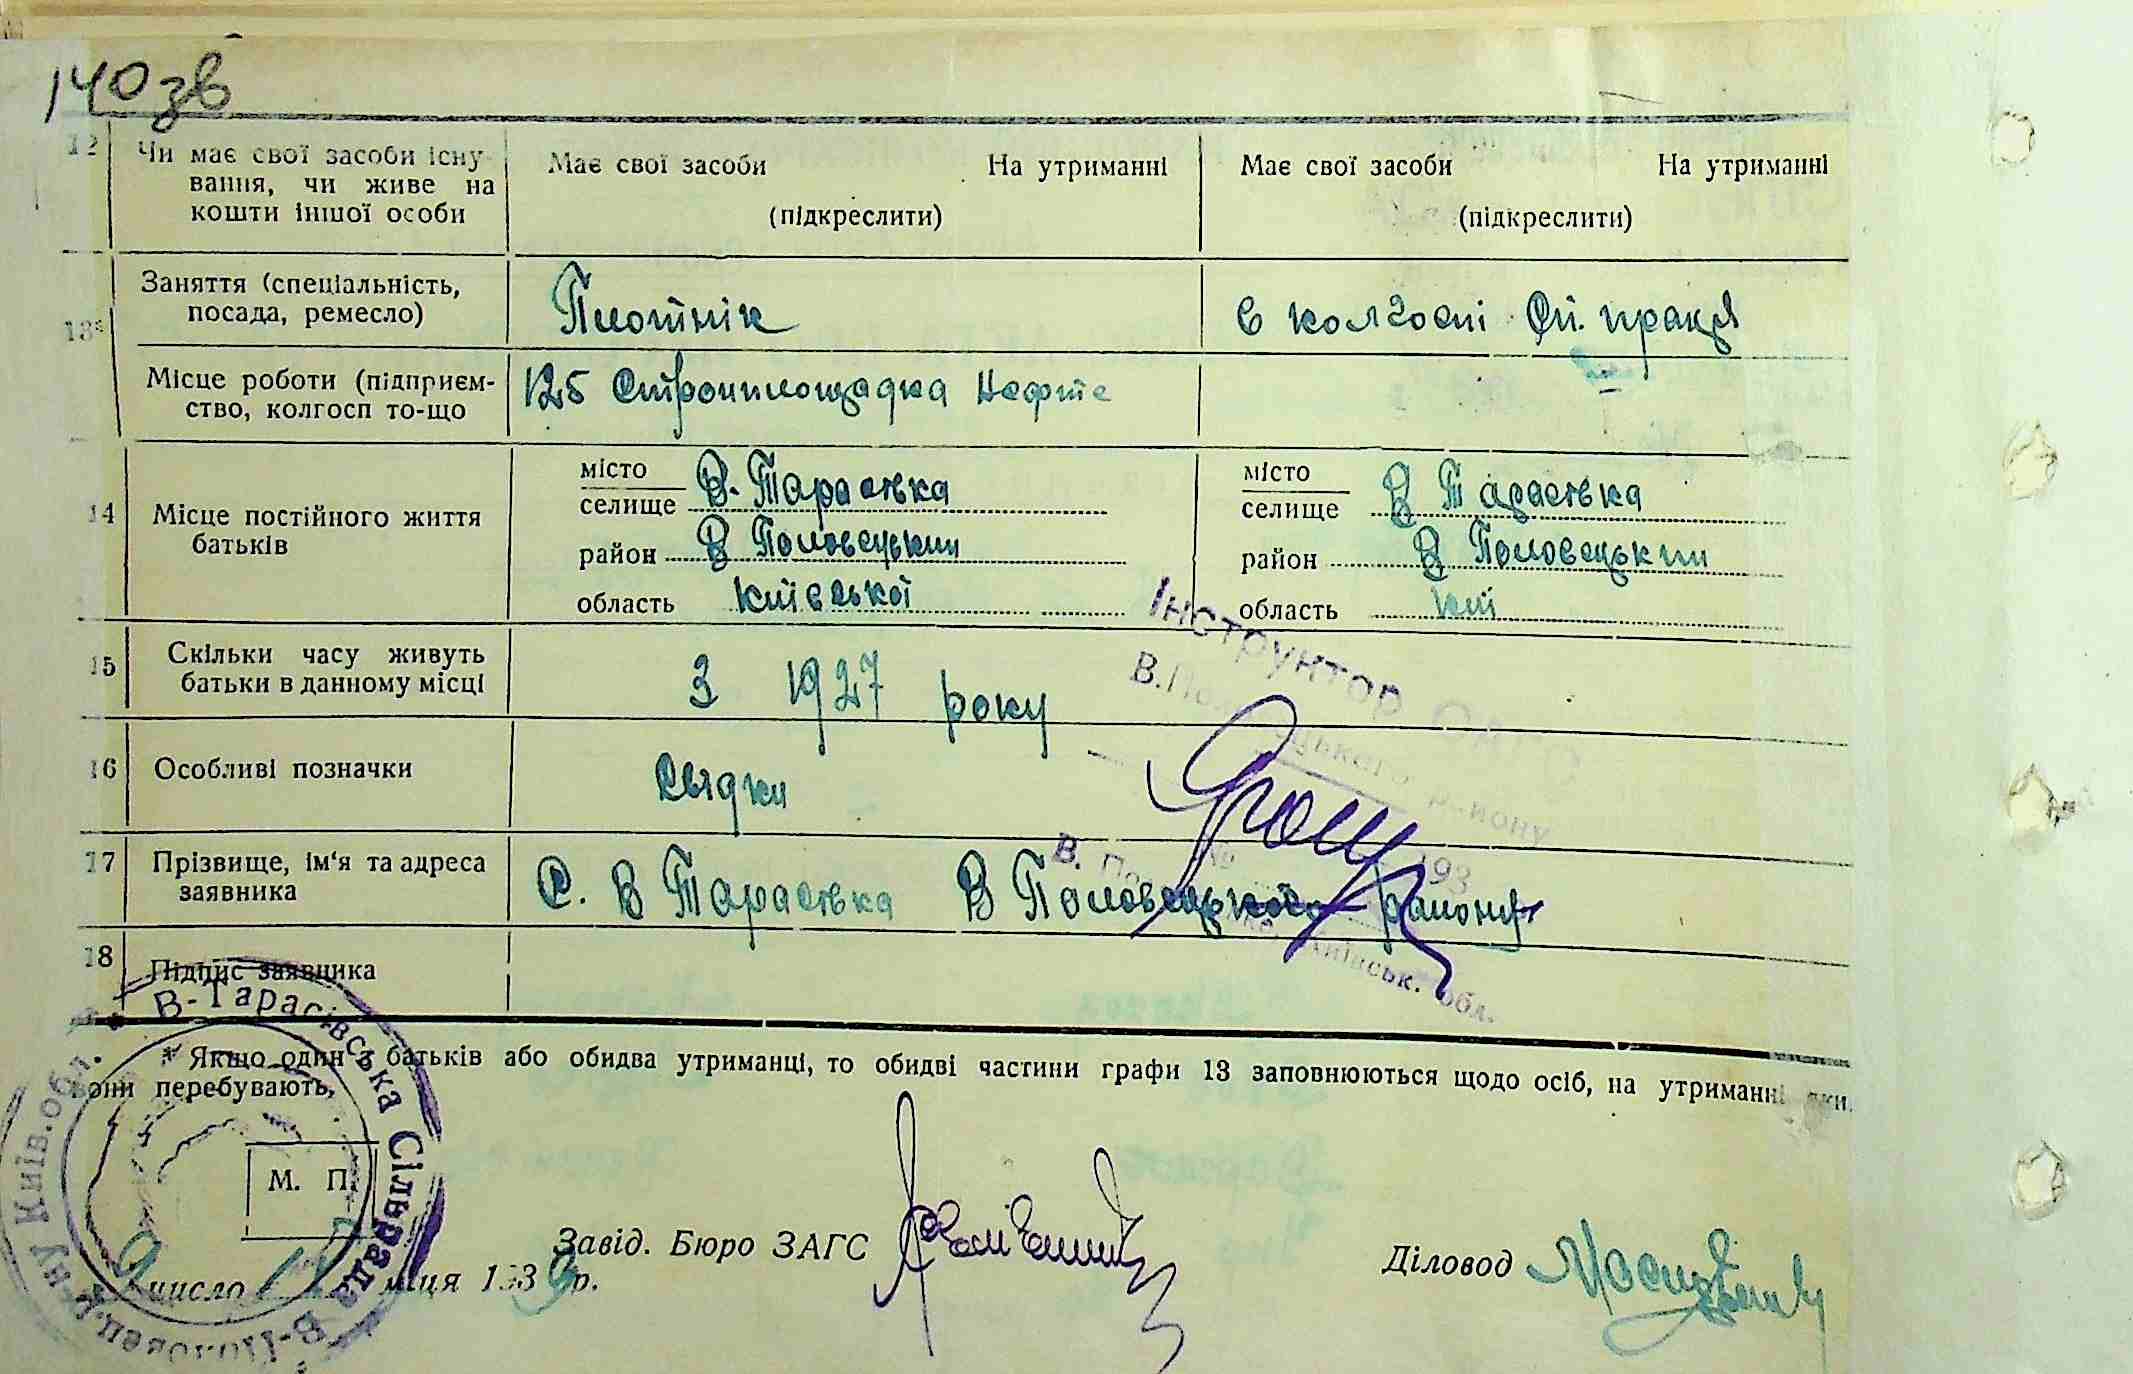 140 зв
12 Чи має свої засоби існу-
вання, чи живе на
кошти іншої особи
Має свої засоби На утриманні
(підкреслити)
Має свої засоби На утриманні
(підкреслити)
13* Заняття (спеціальність,
посада, ремесло)
Плотнік
в колгоспі праця
Місце роботи (підприєм-
ство, колгосп то-що
125 Стройплощадка Нефте
14 Місце постійного життя
батьків
місто
селище В. Тарасівка
район В Половецький
область Київської
місто
селище В Тарасівка
район В Половецький
область Киї
15 Скільки часу живуть
батьки в данному місці
З 1927 року
16 Особливі позначки
свідки
17 Прізвище, ім'я та адреса
заявника
С. В Тарасівка В Половецького району
18 Підпис заявника
Інструктор
В. Половецького району
№ 193
В. Київськ. обл.
* Якщо один з батьків або обидва утриманці, то обидві частини графи 13 заповнюються щодо осіб, на утриманні яких
вони перебувають,
В-Тарасівська Сільрада В-Половец. р-ну Київ. обл.
М. П.
Завід. Бюро ЗАГС
Діловод
число місяця 1939 р.